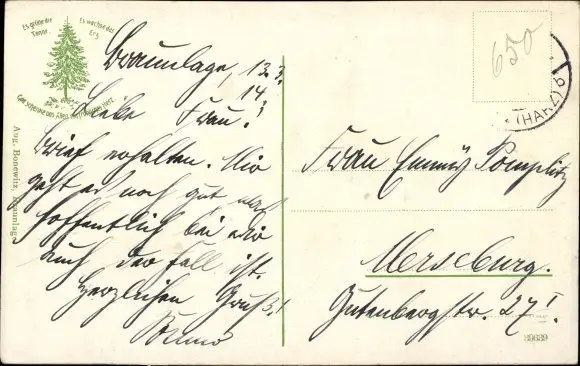 Es grüne die Tanne,
Es wachse das Erz
Gott schenke uns Allen ein fröhliches Herz.
Braunlage, 13.3.
14.
Liebe Frau!
Brief erhalten. Mir
geht es noch gut was
hoffentlich bei dir
auch der Fall ist.
Herzlichen Gruß!
Aug. Bonewitz, Braunlage
650
(HARZ)
Frau Emmy Pomplitz
Merseburg.
Gutenbergstr. 27 I.
39639